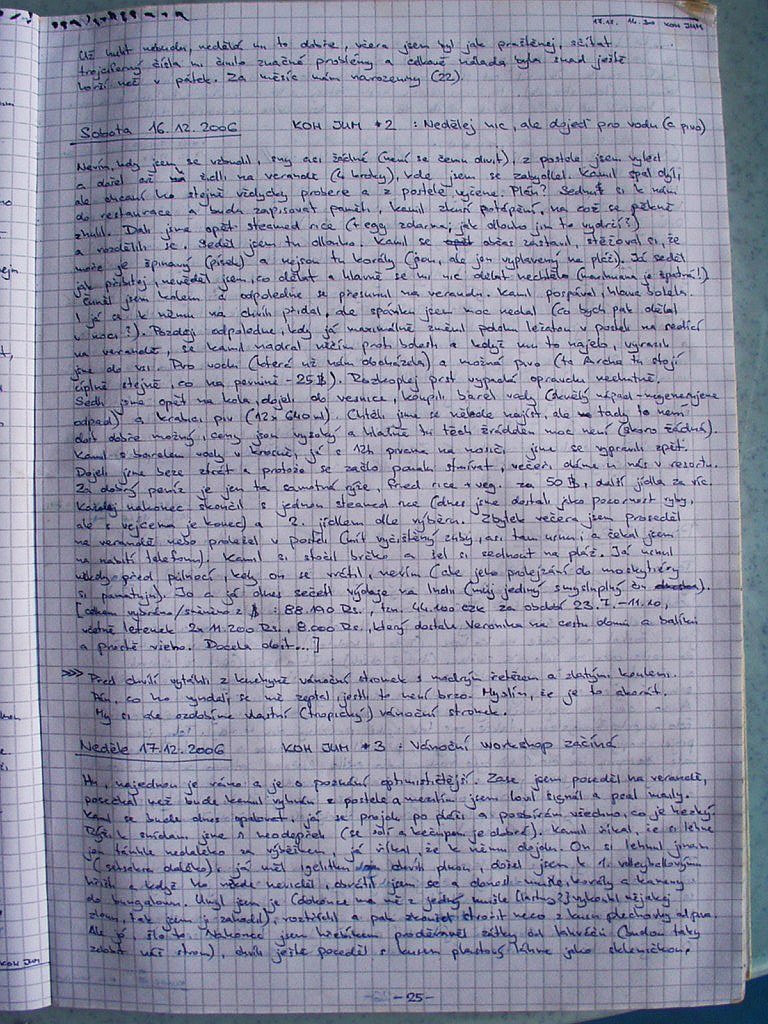 17.12. 14.30 KOH JUM
Už nebudu, nedělá mi to dobře, včera jsem byl jak praštěnej, sčítat
trojciferný čísla mi činilo značné problémy a celková nálada byla snad ještě
horší než v pátek. Za měsíc mám narozeniny (22).
Sobota 16.12.2006 KOH JUM #2 : Nedělej nic, ale dojeď pro vodu (a pivo)
Nevím, kdy jsem se vzbudil, sny asi žádné (není se čemu divit), z postele jsem vylezl
a došel až na židli na verandě (4 kroky), kde jsem se zabydlel. Kamil spal dýl,
ale chcaní ho stejně vždycky probere a z postele vyžene. Plán? Sednu si k nám
do restaurace a budu zapisovat paměti, Kamil zkusí potápění, na což se pěkně
zhulil. Dali jsme opět steamed rice (+ egg zdarma, jak dlouho jim to vydrží?)
a rozdělili se. Seděl jsem tu dlouho. Kamil se občas zastavil, stěžoval si, že
moře je špinavý (písek) a nejsou tu korály (jsou, ale jen vyplavený na pláži). Já seděl
jak přibitej, nevěděl jsem, co dělat a hlavně se mi nic dělat nechtělo (marihuana je špatná!)
Čuměl jsem kolem a odpoledne se přesunul na verandu. Kamil pospával, hlava bolela.
I já se k němu na chvíli přidal, ale spánku jsem moc nedal (co bych pak dělal
v noci?). Později odpoledne, kdy já maximálně změnil polohu ležatou v posteli na sedící
na verandě, se Kamil nadral něčím proti bolesti a když mu to najelo, vyrazili
jsme do vsi. Pro vodu (která už nám docházela) a možná pivo (ta Archa tu stojí
úplně stejně, co na pevnině - 25 ฿). Rozkoplej prst vypadá opravdu nechutně.
Sedli jsme opět na kola, dojeli do vesnice, koupili barel vody (skvělý nápad - negenerujeme
odpad) a krabici piv (12x 640 ml). Chtěli jsme se někde najíst, ale tady to není
dost dobře možný, ceny jsou vysoký a hlavně tu těch žrádelen moc není (skoro žádná).
Kamil s barelem vody v krosně, já s 12ti pivama na nosiči jsme se vypravili zpět.
Dojeli jsme beze ztrát a protože se začlo pomalu stmívat, večeři dáme u nás v resortu.
Za dobrý peníz je jen ta samotná rýže, fried rice + veg. za 50 ฿, další jídla za víc.
Každej nakonec skončil s jednou steamed rice (dnes jsme dostali jako pozornost ryby,
ale s vejcema je konec) a 2. jídlem dle výběru. Zbytek večera jsem proseděl
na verandě nebo proležel v posteli (mít vyčištěný zuby, asi tam usnu, a čekal jsem
na nabití telefonu). Kamil si stočil brčko a šel si sednout na pláž. Já usnul
někdy před půlnocí, kdy on se vrátil, nevím (ale jeho prolejzání do moskytiéry
si pamatuju). Jo a já dnes sečetl výdaje na Indii (můj jediný smysluplný čin).
[celkem vybráno/směněno z $ : 88.190 Rs., tzn. 44.100 CZK za období 23.7. - 11.10,
včetně letenek 2x 11.200 Rs., 8.000 Rs., který dostala Veronika na cestu domů a balíků
a prostě všeho. Docela dost...]
>>> Před chvílí vytáhli z kuchyně vánoční stromek s modrým řetězem a zlatými koulemi.
Pán, co ho vyndal, se mě zeptal, jestli to není brzo. Myslím, že je to akorát.
My si ale ozdobíme vlastní (tropický) vánoční stromek.
Neděle 17.12.2006 KOH JUM #3 : Vánoční workshop začíná
Hm, najednou je ráno a je o poznání optimističtější. Zase jsem poseděl na verandě,
posečkal než bude Kamil vyhnán z postele a mezitím jsem lovil signál a psal maily.
Kamil se bude dnes opalovat, já se projdu po pláži a posbírám všechno, co je hezký.
Rýži k snídani jsme s neodepřeli (se solí a kečupem je dobrá). Kamil říkal, že si lehne
jen támhle nedaleko za výběžkem, já říkal, že k němu dojdu. On si lehnul jinam
(setsakra daleko), já měl igelitku za chvíli plnou, došel jsem k 1. volleyballovýmu
hřišti a když ho nikde neviděl, obrátil jsem se a donesl mušle, korály a kameny
do bungalovu. Umyl jsem je (dokonce na mě z jedný mušle vykoukl nějakej
, tak jsem ji zahodil), roztřídil a pak zkoušel stvořit něco z kusu plechovky od piva.
Ale jo, šlo to. Nakonec jsem hřebíkem proděravěl zátky od lahváčů (budou taky
zdobit náš strom), chvíli ještě poseděl s kusem plastový láhve jako skleničkou.
- 25 -
KOH JUM